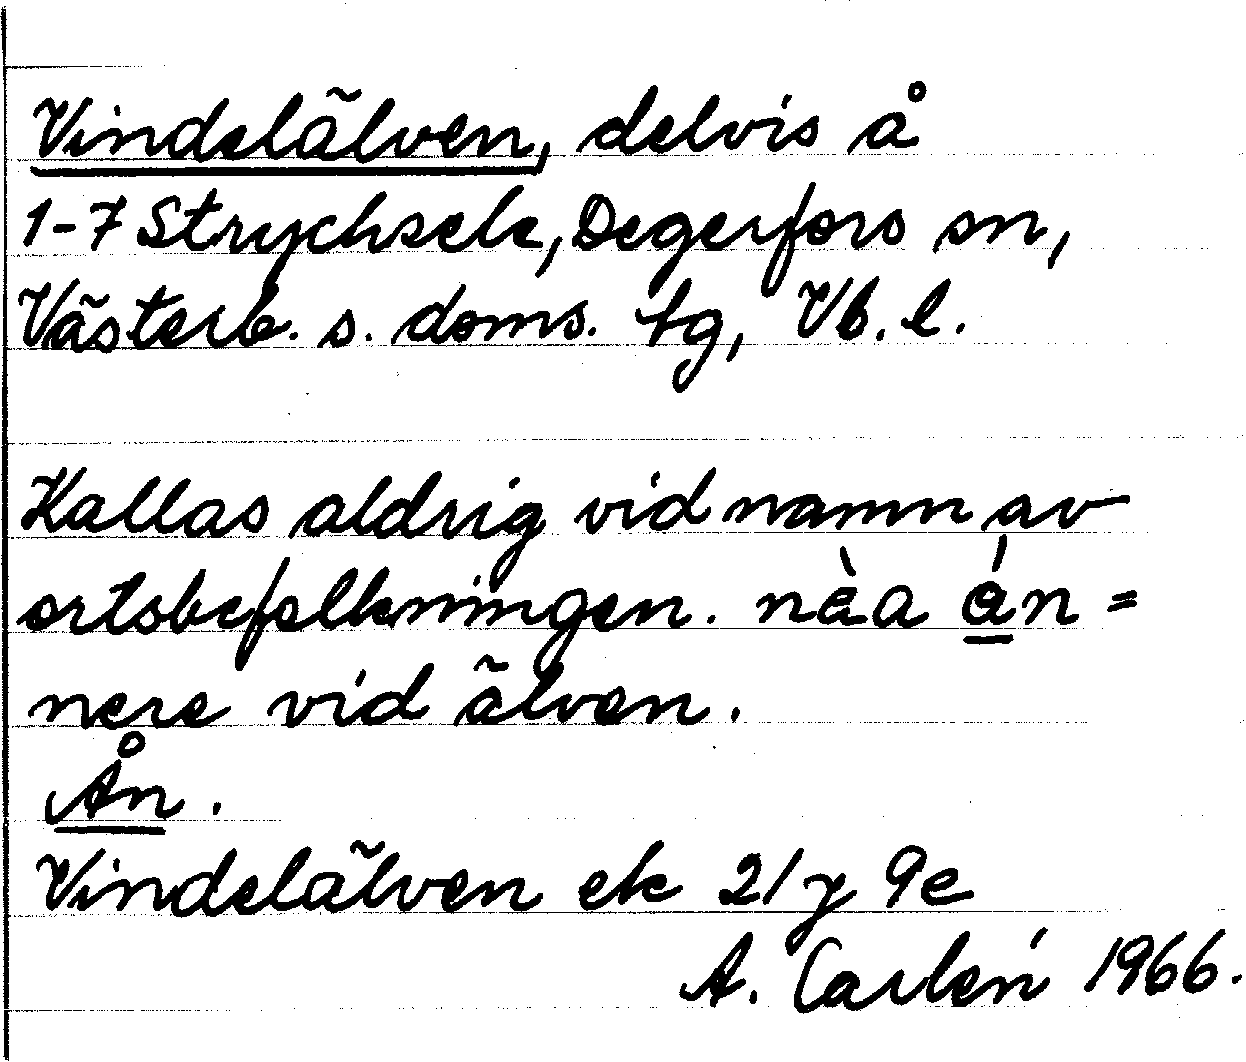 Vindelälven, delvis å
1-7 Strycksele, Degerfors sn,
Västerb. s. doms. tg, Vb. l.
Kallas aldrig vid namn av
ortsbefolkningen. nèa án =
nere vid älven.
Ån.
Vindelälven ek 21 y 9e
A. Carlén 1966.